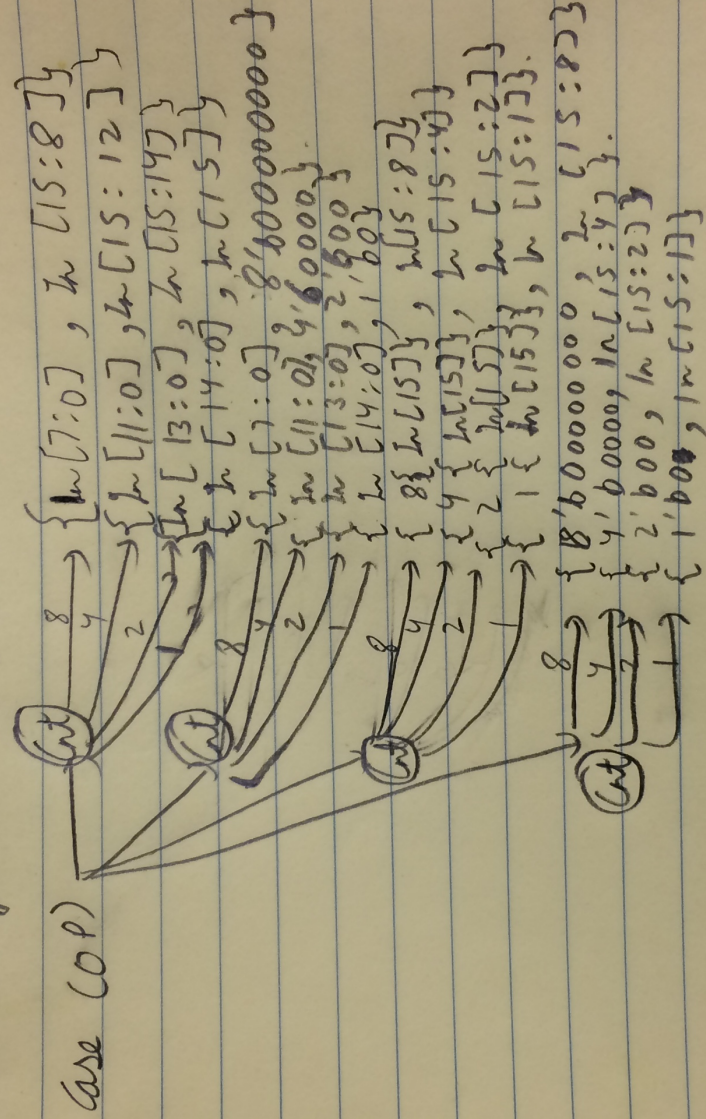 Case (OP)
Cnt
8 {In[7:0], In[15:8]}
4 {In[11:0], In[15:12]}
2 {In[13:0], In[15:14]}
1 {In[14:0], In[15]}
Cnt
8 {In[7:0], 8'b00000000}
4 {In[11:0], 4'b0000}.
2 {In[13:0], 2'b00}
1 {In[14:0], 1'b0}
Cnt
8 {8{In[15]}, In[15:8]}
4 {4{In[15]}, In[15:4]}
2 {2{In[15]}, In[15:2]}
1 {1{In[15]}, In[15:1]}.
Cnt
8 {8'b00000000, In[15:8]}
4 {4'b0000, In[15:4]}.
2 {2'b00, In[15:2]}
1 {1'b0, In[15:1]}